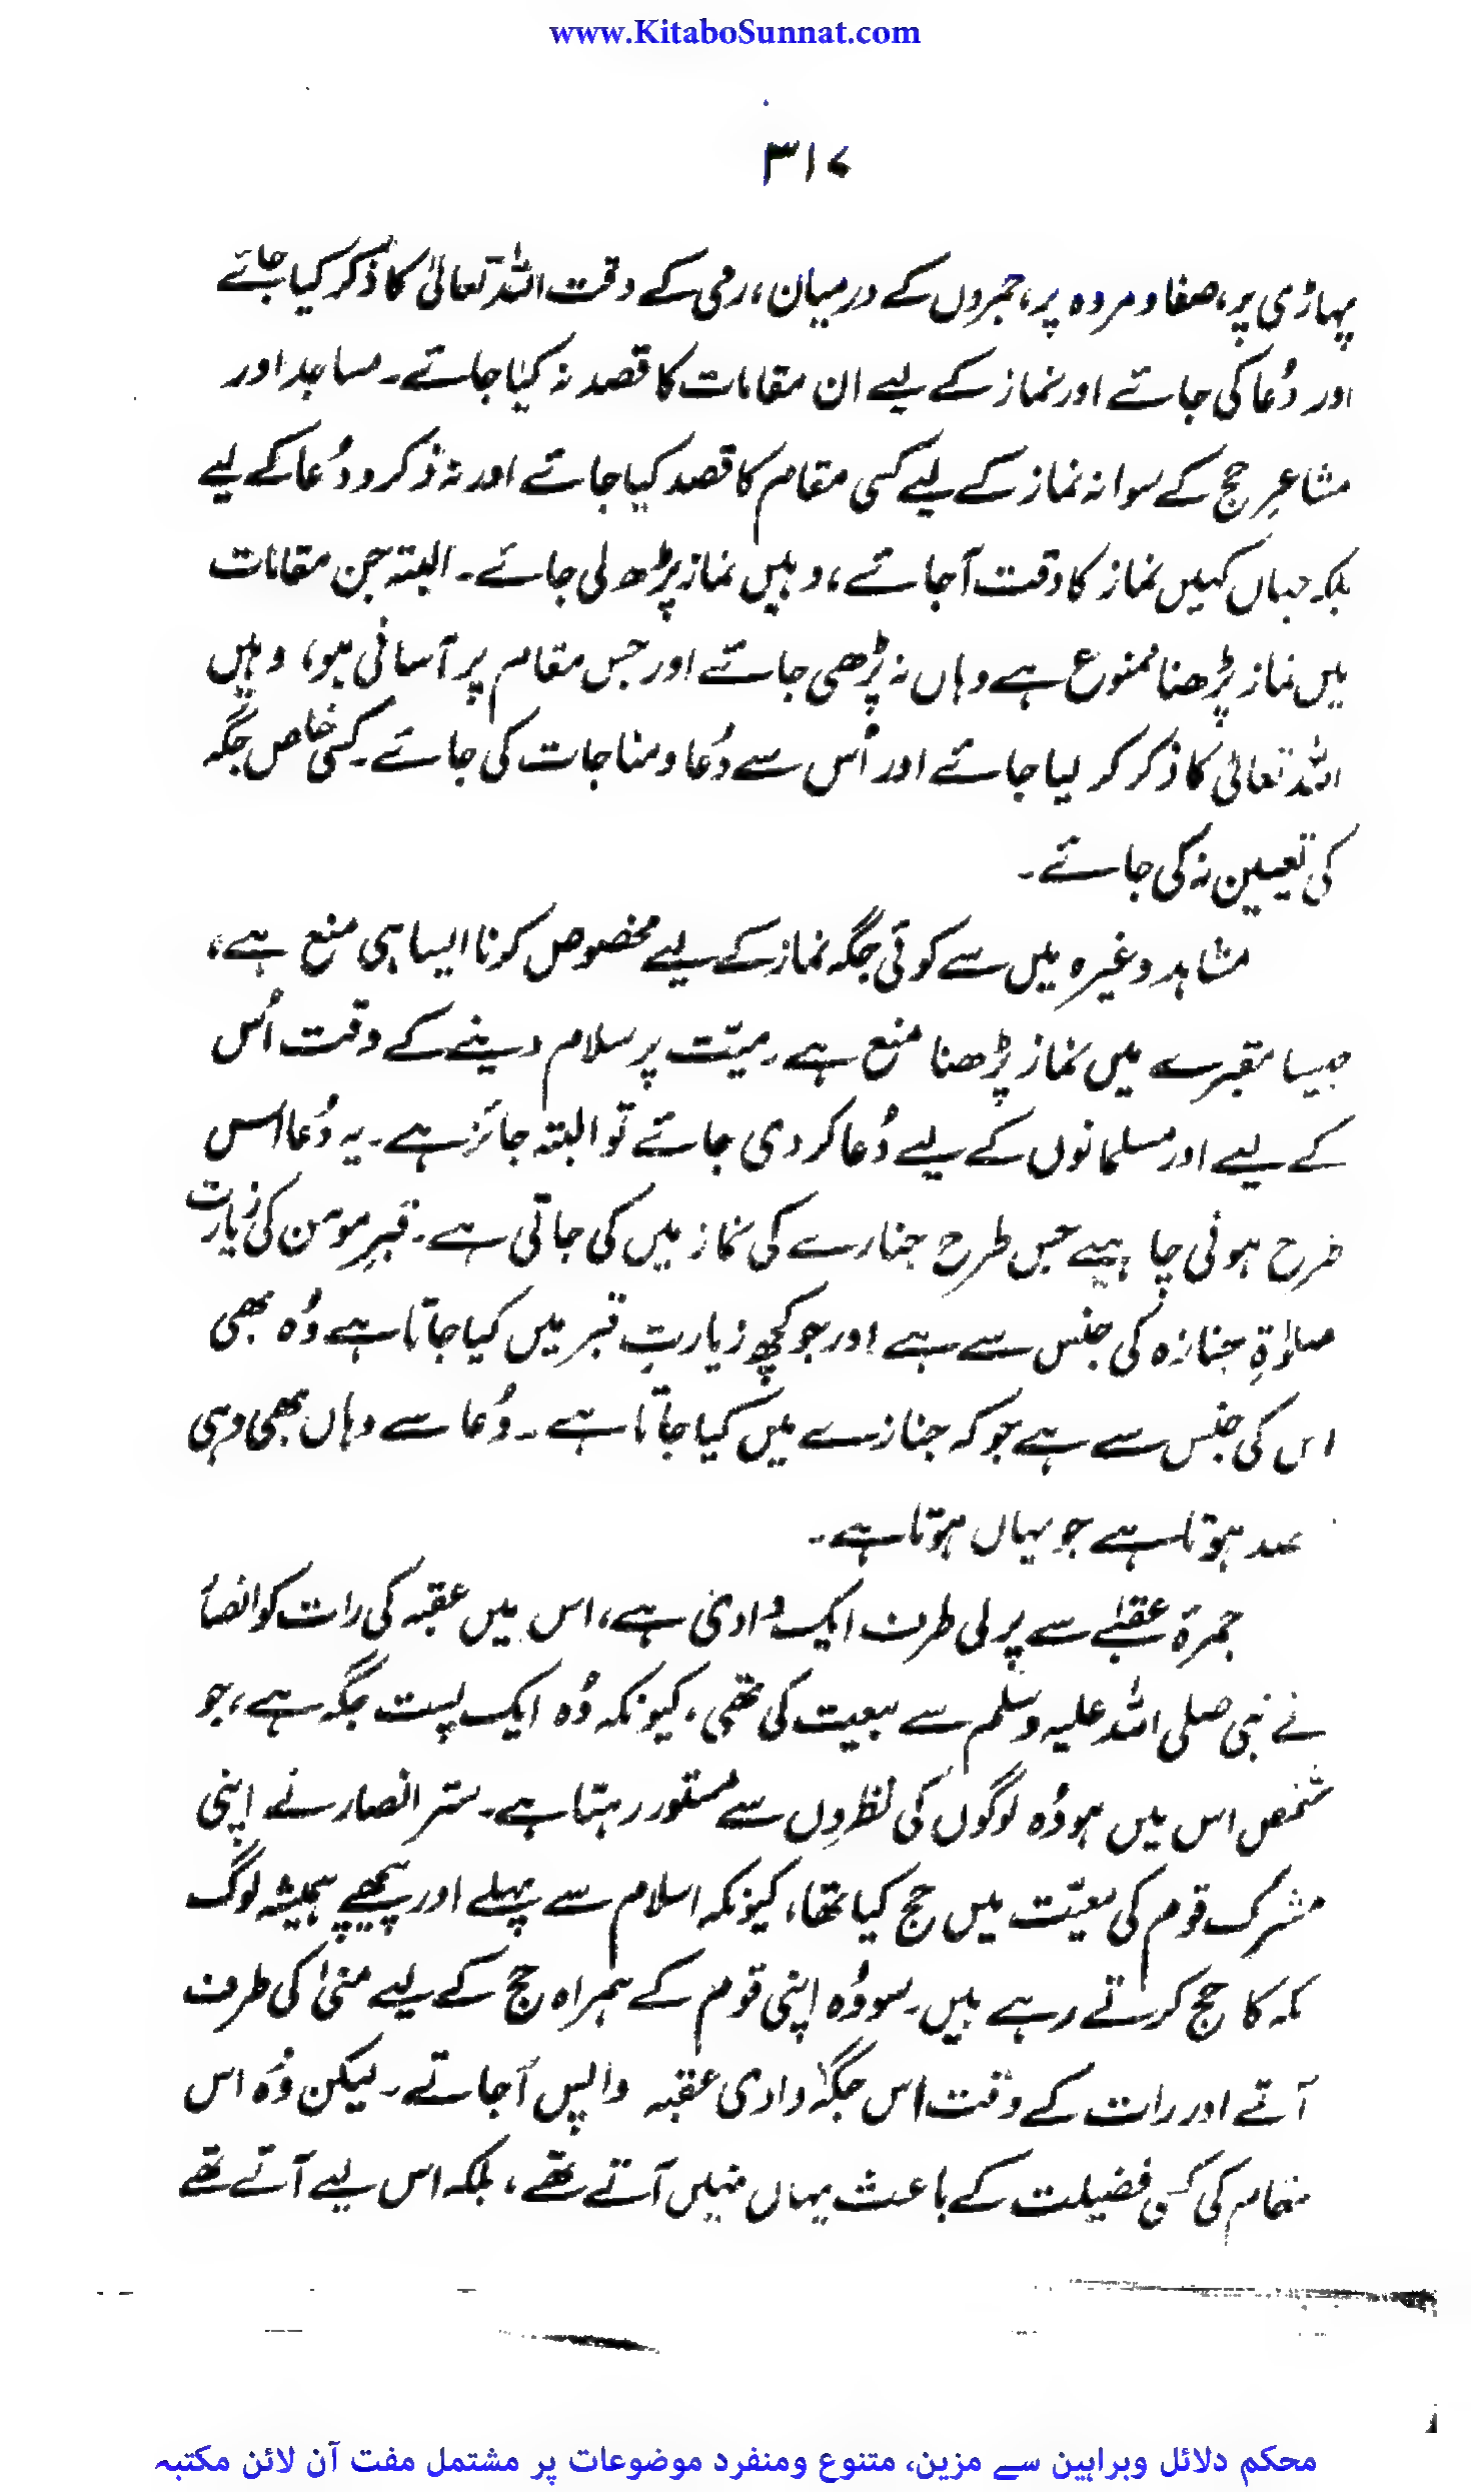 www.KitaboSunnat.com
۳۱۷
پہاڑی پر، صفا و مروہ پر، جمروں کے درمیان، رمی کے وقت اللہ تعالیٰ کا ذکر کیا جائے
اور دُعا کی جائے اور نماز کے لیے ان مقامات کا قصد نہ کیا جائے۔ مساجد اور
مشاعرِ حج کے سوا نہ نماز کے لیے کسی مقام کا قصد کیا جائے اور نہ ذکر و دُعا کے لیے
بلکہ جہاں کہیں نماز کا وقت آ جائے، وہیں نماز پڑھ لی جائے۔ البتہ جن مقامات
میں نماز پڑھنا ممنوع ہے وہاں نہ پڑھی جائے اور جس مقام پر آسانی ہو، وہیں
اللہ تعالیٰ کا ذکر کر لیا جائے اور اُس سے دُعا و مناجات کی جائے۔ کسی خاص جگہ
کی تعیین نہ کی جائے۔
مشاہد وغیرہ میں سے کوئی جگہ نماز کے لیے مخصوص کرنا ایسا ہی منع ہے،
جیسا مقبرے میں نماز پڑھنا منع ہے۔ میّت پر سلام دینے کے وقت اُس
کے لیے اور مسلمانوں کے لیے دُعا کر دی جائے تو البتہ جائز ہے۔ یہ دُعا اس
طرح ہونی چاہیے جس طرح جنازے کی نماز میں کی جاتی ہے۔ قبرِ مومن کی زیارت
صلوٰۃِ جنازہ کی جنس سے ہے اور جو کچھ زیارتِ قبر میں کیا جاتا ہے وُہ بھی
اس کی جنس سے ہے جو کہ جنازے میں کیا جاتا ہے۔ دُعا سے وہاں بھی وہی
ہوتا ہے جو یہاں ہوتا ہے۔
جمرۂ عقبے سے پرلی طرف ایک وادی ہے، اس میں عقبہ کی رات کو انصار
نے نبی صلی اللہ علیہ وسلم سے بیعت کی تھی، کیونکہ وُہ ایک پست جگہ ہے، جو
شخص اس میں ہو وُہ لوگوں کی نظروں سے مستور رہتا ہے۔ ستر انصار نے اپنی
مشرک قوم کی معیّت میں حج کیا تھا، کیونکہ اسلام سے پہلے اور پیچھے ہمیشہ لوگ
مکہ کا حج کرتے رہے ہیں۔ سو وُہ اپنی قوم کے ہمراہ حج کے لیے منیٰ کی طرف
آتے اور رات کے وقت اس جگہ وادی عقبہ واپس آ جاتے۔ لیکن وُہ اس
مقام کی کسی فضیلت کے باعث یہاں نہیں آتے تھے، بلکہ اس لیے آتے تھے
محکم دلائل وبراہین سے مزین، متنوع ومنفرد موضوعات پر مشتمل مفت آن لائن مکتبہ